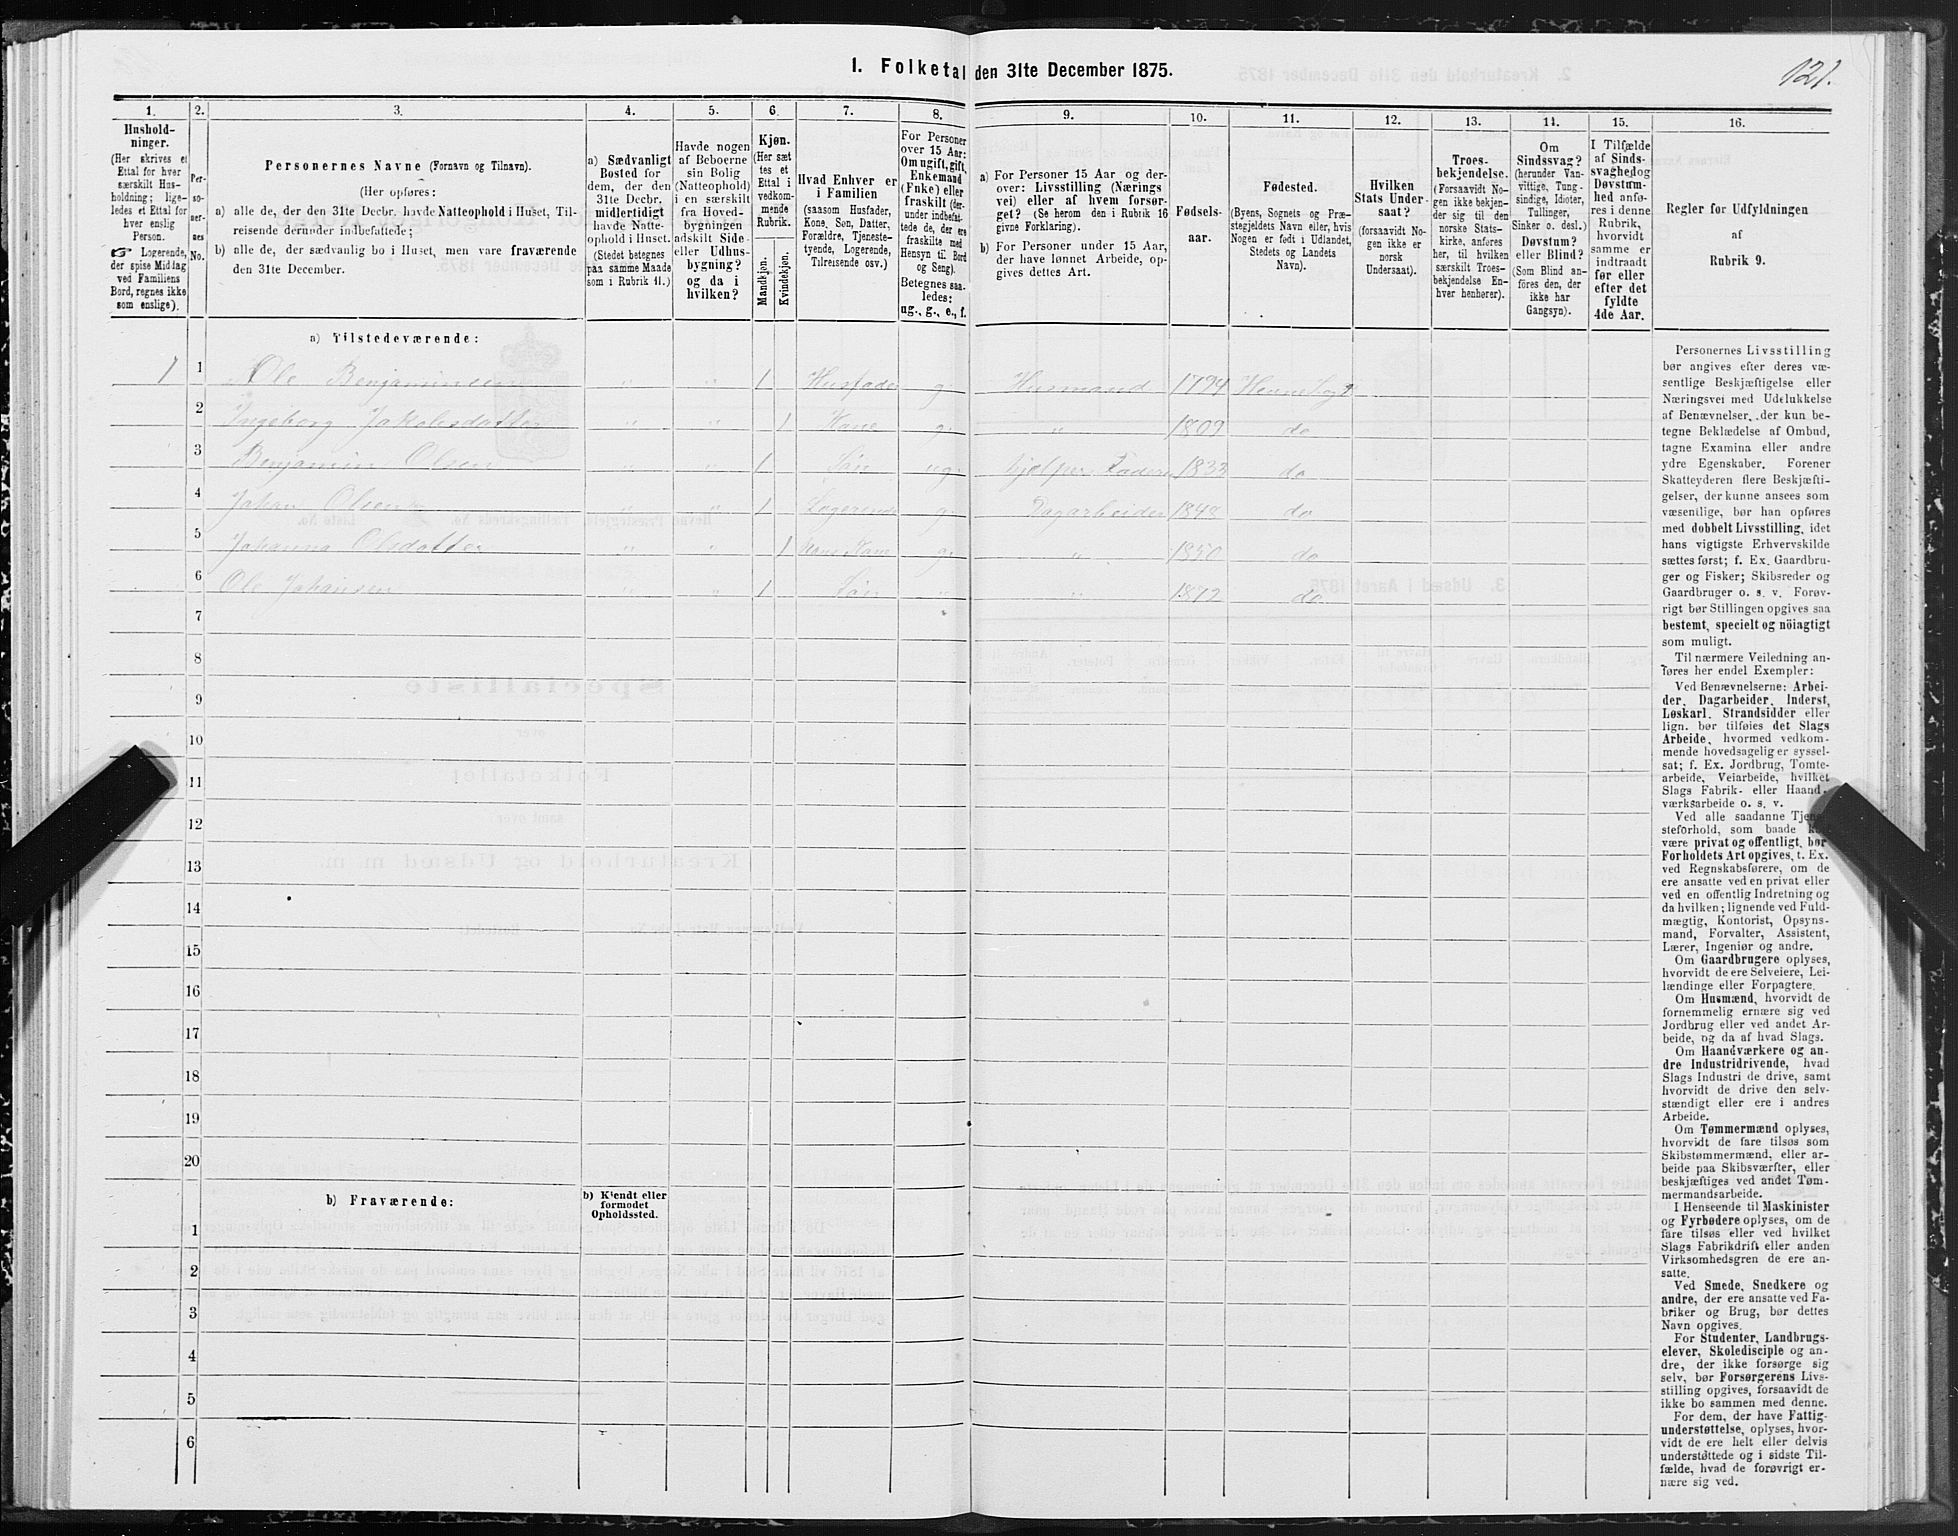 1. Folketal den 31te December 1875.
121.
1.
Hushold-
ninger.
(Her skrives et
Ettal for hver
særskilt Hus-
holdning; lige-
ledes et Ettal for
hver enslig
Person.
Logerende,
der spise Middag
ved Familiens
Bord, regnes ikke
som enslige).
2.
Per-
so-
ner-
nes
No.
3.
Personernes Navne (Fornavn og Tilnavn).
(Her opføres:
a) alle de, der den 31te Decbr. havde Natteophold i Huset, Til-
reisende derunder indbefattede;
b) alle de, der sædvanlig bo i Huset, men vare fraværende
den 31te December.
4.
a) Sædvanligt
Bosted for
dem, der den
31te Decbr.
midlertidigt
havde Natte-
ophold i Huset.
(Stedet betegnes
paa samme Maade
som i Rubrik 11.)
5.
Havde nogen
af Beboerne
sin Bolig
(Natteophold)
i en særskilt
fra Hoved-
bygningen
adskilt Side-
eller Udhus-
bygning?
og da i
hvilken?
6.
Kjøn.
(Her sæt
tes et
Ettal i
vedkom-
mende
Rubrik.
Mandkjøn.
Kvindekjøn.
7.
Hvad Enhver er
i Familien
(saasom Husfader,
Kone, Søn, Datter,
Forældre, Tjeneste-
tyende, Logerende,
Tilreisende osv.)
8.
For Personer
over 15 Aar:
Om ugift, gift,
Enkemand
(Enke) eller
fraskilt (der-
under indbefat-
tede de, der ere
fraskilte med
Hensyn til Bord
og Seng).
Betegnes saa-
ledes:
ug., g., e., f.
9.
a) For Personer 15 Aar og der-
over: Livsstilling (Nærings
vei) eller af hvem forsør-
get? (Se herom den i Rubrik 16
givne Forklaring).
b) For Personer under 15 Aar,
der have lønnet Arbeide, op-
gives dettes Art.
10.
Fødsels-
aar.
11.
Fødested.
(Byens, Sognets og Præ-
stegjeldets Navn eller, hvis
Nogen er født i Udlandet,
Stedets og Landets
Navn).
12.
Hvilken
Stats Under-
saat?
(forsaavidt No-
gen ikke er
norsk
Undersaat).
13.
Troes-
bekjendelse.
(Forsaavidt No-
gen ikke bekjen-
der sig til den
norske Stats-
kirke, anføres
her, til hvilken
særskilt Troes-
bekjendelse En-
hver henhører).
14.
Om
Sindssvag?
(herunder Van-
vittige, Tung-
sindige, Idioter,
Tullinger,
Sinker o. desl.)
Døvstum?
eller Blind?
(Som Blind an-
føres den, der
ikke har
Gangsyn).
15.
I Tilfælde
af Sinds-
svaghed og
Døvstum-
hed anfø-
res i denne
Rubrik,
hvorvidt
samme er
indtraadt
før eller
efter det
fyldte
4de Aar.
16.
Regler for Udfyldningen
af
Rubrik 9.
a) Tilstedeværende:
1 1 Ole Benjaminsen " " 1 Husfader g. Husmand 1794 Hevne
2 Ingeborg Jakobsdatter " " 1 Kone g. " 1809 do
3 Benjamin Olsen " " 1 Søn ug. hjelper Faderen 1832 do
4 Johan Olsen " " 1 Logerende g. Dagarbeider 1848 do
5 Johanna Olsdatter " " 1 Hans Kone g. " 1850 do
6 Ole Johansen " " 1 Søn " " 1872 do
7
8
9
10
11
12
13
14
15
16
17
18
19
20
b) Fraværende:
b) Kjendt eller
formodet
Opholdssted.
1
2
3
4
5
6
Personernes Livsstilling
bør angives efter deres væ-
sentlige Beskjæftigelse eller
Næringsvei med Udelukkelse
af Benævnelser, der kun be-
tegne Beklædelse af Ombud,
tagne Examina eller andre
ydre Egenskaber. Forener
Skatteyderen flere Beskjæfti-
gelser, der kunne ansees som
væsentlige, bør han opføres
med dobbelt Livsstilling, idet
hans vigtigste Erhvervskilde
sættes først; f. Ex. Gaardbru-
ger og Fisker; Skibsreder og
Gaardbruger o. s. v. Forøv-
rigt bør Stillingen opgives saa
bestemt, specielt og nöiagtigt
som muligt.
Til nærmere Veiledning an-
føres her endel Exempler:
Ved Benævnelserne: Arbei-
der, Dagarbeider, Inderst,
Løskarl, Strandsidder eller
lign. bør tilføies det Slags
Arbeide, hvormed vedkom-
mende hovedsagelig er syssel-
sat; f. Ex. Jordbrug, Tomte-
arbeide, Veiarbeide, hvilket
Slags Fabrik- eller Haand-
værksarbeide o. s. v.
Ved alle saadanne Tjene-
steforhold, som baade
være privat og offentligt, bør
Forholdets Art opgives, t. Ex.
ved Regnskabsførere, om de
ere ansatte ved en privat eller
ved en offentlig Indretning og
da hvilken; lignende ved Fuld-
mægtig, Kontorist, Opsyns-
mand, Forvalter, Assistent,
Lærer, Ingeniør og andre.
Om Gaardbrugere oplyses,
hvorvidt de ere Selveiere, Lei-
lændinge eller Forpagtere.
Om Husmænd, hvorvidt de
fornemmelig ernære sig ved
Jordbrug eller ved andet Ar-
beide, og da af hvad Slags.
Om Haandværkere og an-
dre Industridrivende, hvad
Slags Industri de drive, samt
hvorvidt de drive den selv-
stændigt eller ere i andres
Arbeide.
Om Tømmermænd oplyses,
hvorvidt de fare tilsøs som
Skibstømmermænd, eller ar-
beide paa Skibsværfter, eller
beskjæftiges ved andet Tøm-
mermandsarbeide.
I Henseende til Maskinister
og Fyrbødere oplyses, om de
fare tilsøs eller ved hvilket
Slags Fabrikdrift eller anden
Virksomhedsgren de ere an-
satte.
Ved Smede, Snedkere og
andre, der ere ansatte ved Fa-
briker og Brug, bør dettes
Navn opgives.
For Studenter, Landbrugs-
elever, Skoledisciple og an-
dre, der ikke forsørge sig
selv, bør Forsørgerens Livs-
stilling opgives, forsaavidt de
ikke bo sammen med denne.
For dem, der have Fattig-
understøttelse, oplyses, hvor-
vidt de ere helt eller delvis
understøttede og i sidste Til-
fælde, hvad de forøvrigt er-
nære sig ved.